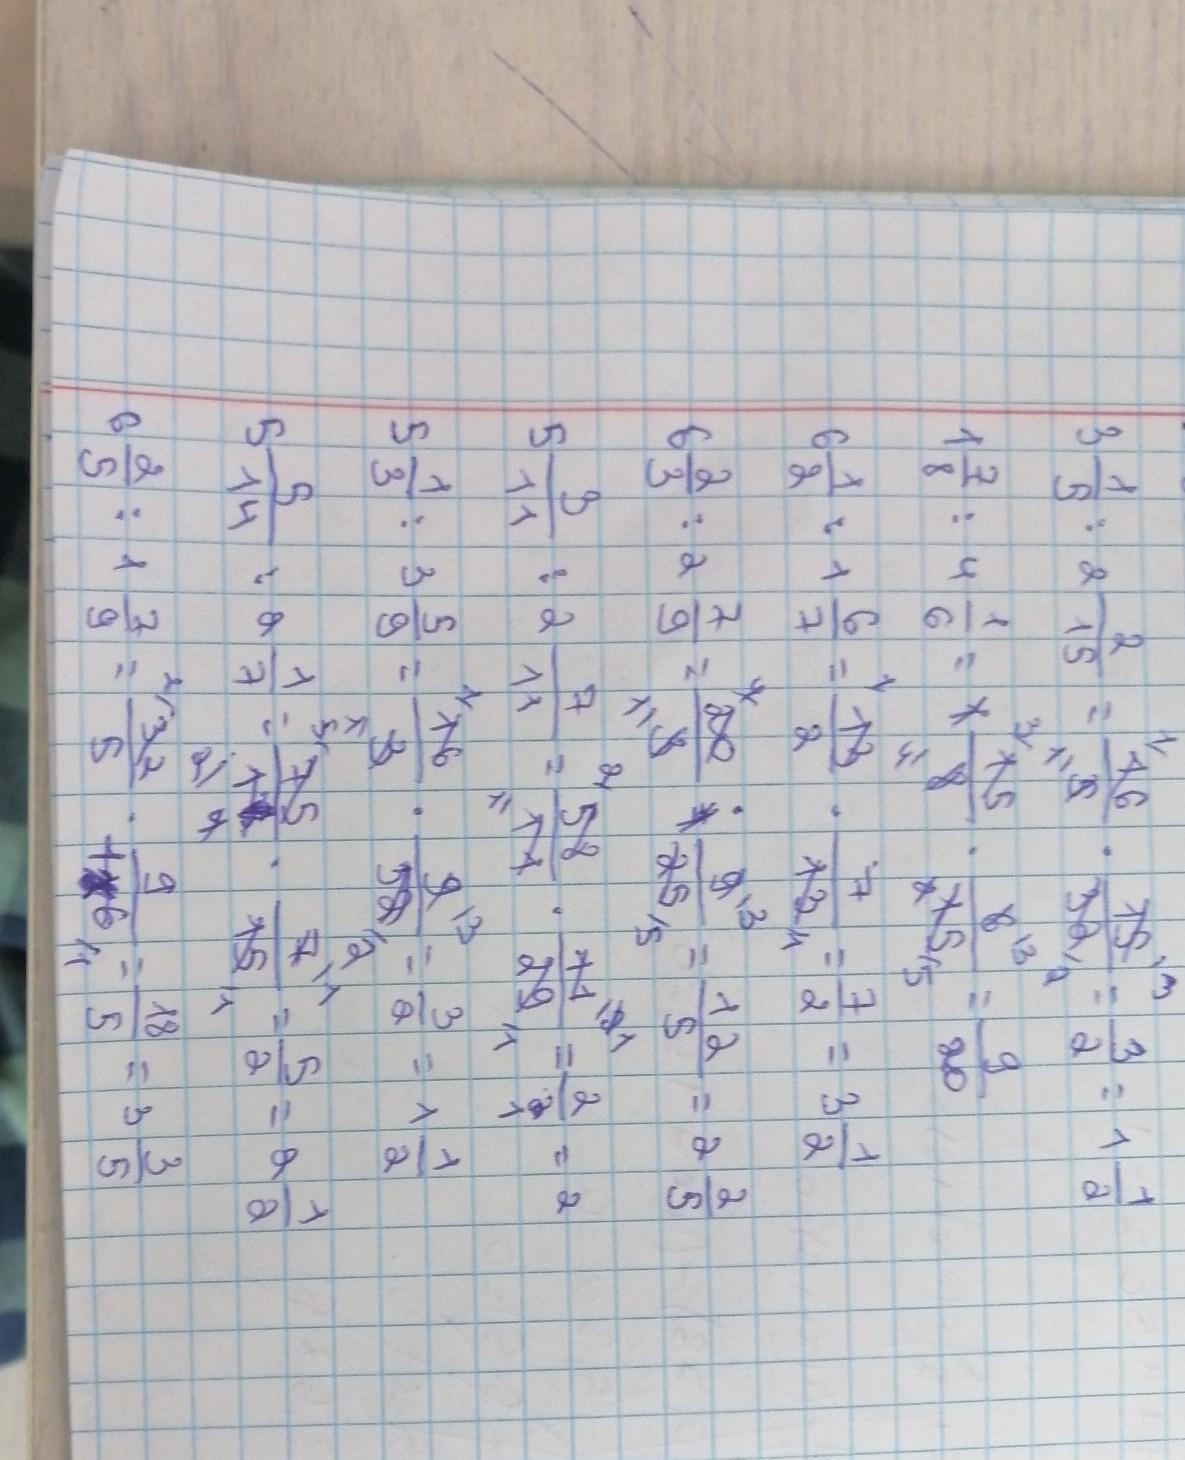 3 1/5 : 2 2/15 = 16/5 · 15/32 = 3/2 = 1 1/2
1 7/8 : 4 1/6 = 15/8 · 6/25 = 9/20
6 1/2 : 1 6/7 = 13/2 · 7/13 = 7/2 = 3 1/2
6 2/3 : 2 7/9 = 20/3 · 9/25 = 12/5 = 2 2/5
5 3/11 : 2 7/11 = 58/11 · 11/29 = 2/1 = 2
5 1/3 : 3 5/9 = 16/3 · 9/32 = 3/2 = 1 1/2
5 5/14 : 2 1/7 = 75/14 · 7/15 = 5/2 = 2 1/2
6 2/5 : 1 7/9 = 32/5 · 9/16 = 18/5 = 3 3/5